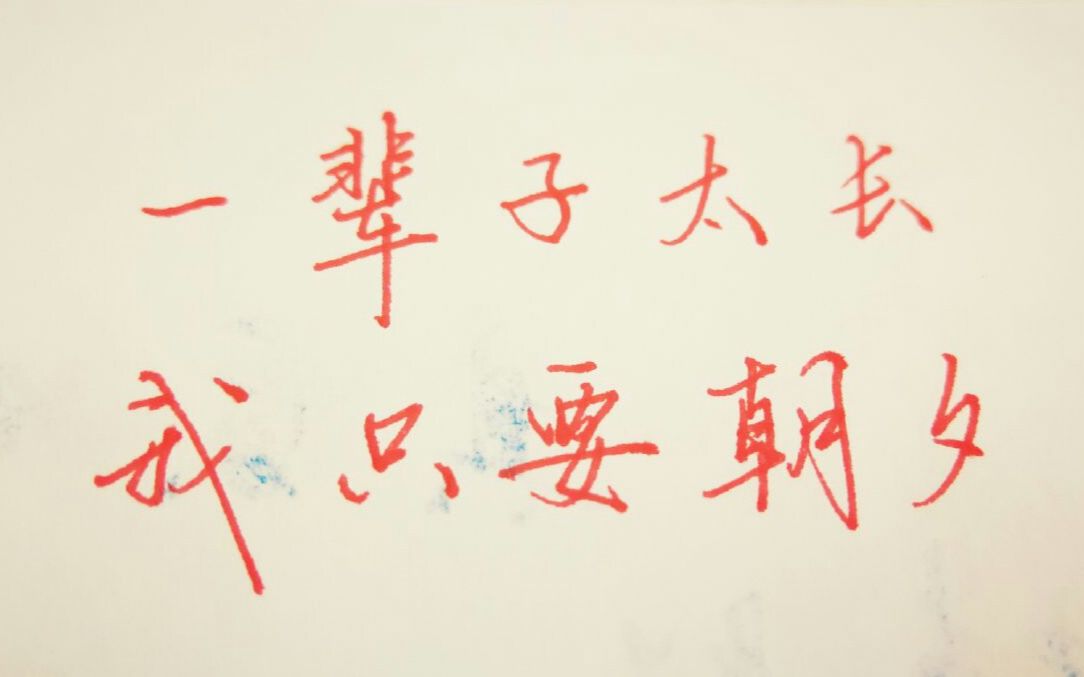 一辈子太长
我只要朝夕